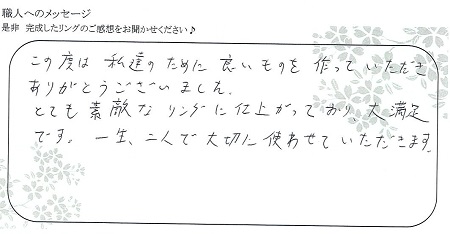 職人へのメッセージ
是非 完成したリングのご感想をお聞かせください♪
この度は 私達のために 良いものを 作っていただき
ありがとうございました.
とても 素敵な リングに 仕上がっており、大満足
です。 一生、二人で 大切に 使わせて いただきます.